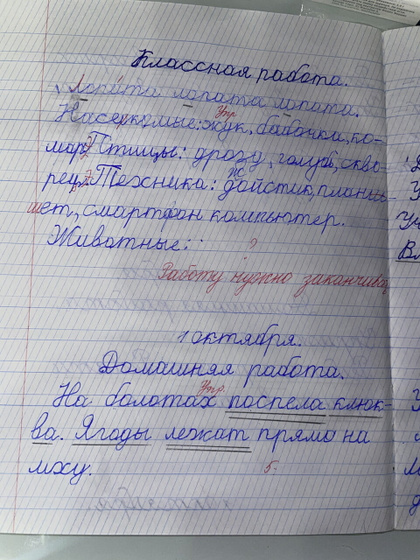 Классная работа.
Лопата лопата лопата.
Упр
Насекомые: жук, бабочка, ко-
мар Птицы: дрозд, голубь, скво-
рец. Техника: джойстик, планш-
шет, смартфон компьютер.
Животные:
?
Работу нужно заканчива
1 октября.
Домашняя работа.
Упр.
На болотах поспела клюк-
ва. Ягоды лежат прямо на
мху.